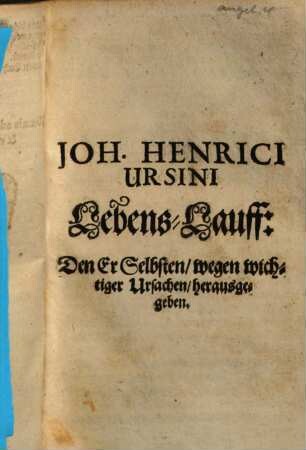 angel. 4
JOH. HENRICI
URSINI
Lebens-Lauff:
Den Er Selbsten/ wegen wich-
tiger Ursachen/ herausge-
geben.